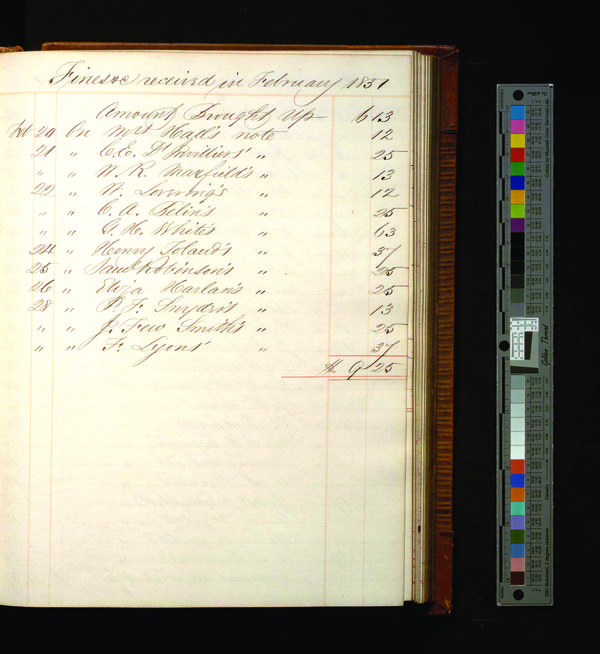 Fines &c received in February 1851
Amount Brought Up 6 13
Feb 20 On Mrs Hall's note 12
21 " C. E. D'Invilliers' " 25
" " N. R. Maxfield's " 13
22 " N. Levering's " 12
" " C. A. Belin's " 25
" " G. H. White's " 63
24 " Henry Toland's " 37
25 " Saml Robinson's " 25
26 " Eliza Harlan's " 25
28 " P. F. Snyder's " 13
" " J. Few Smith's " 25
" " F. Lyons' " 37
$ 9 25